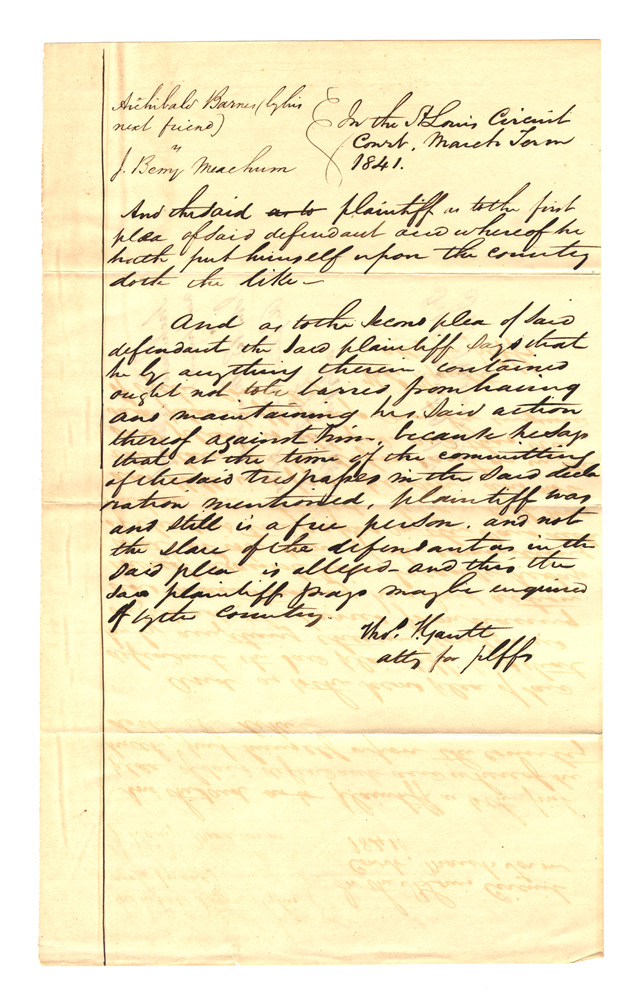 Archibald Barnes (by his
next friend)
v
J. Berry Meachum
In the St Louis Circuit
Court, March Term
1841.
And the said as to plaintiff as to the first
plea of said defendant and whereof he
hath put himself upon the country
doth the like –
And as to the second plea of said
defendant the said plaintiff says that
he by anything therein contained
ought not to be barred from having
and maintaining his said action
thereof against him, because he says
that at the time of the committing
of the said trespasses in the said decla
ration mentioned, plaintiff was
and still is a free person, and not
the slave of the defendant as in the
said plea is alleged – and this the
said plaintiff prays may be enquired
of by the country.
Thos. T. Gantt
atty for plffs